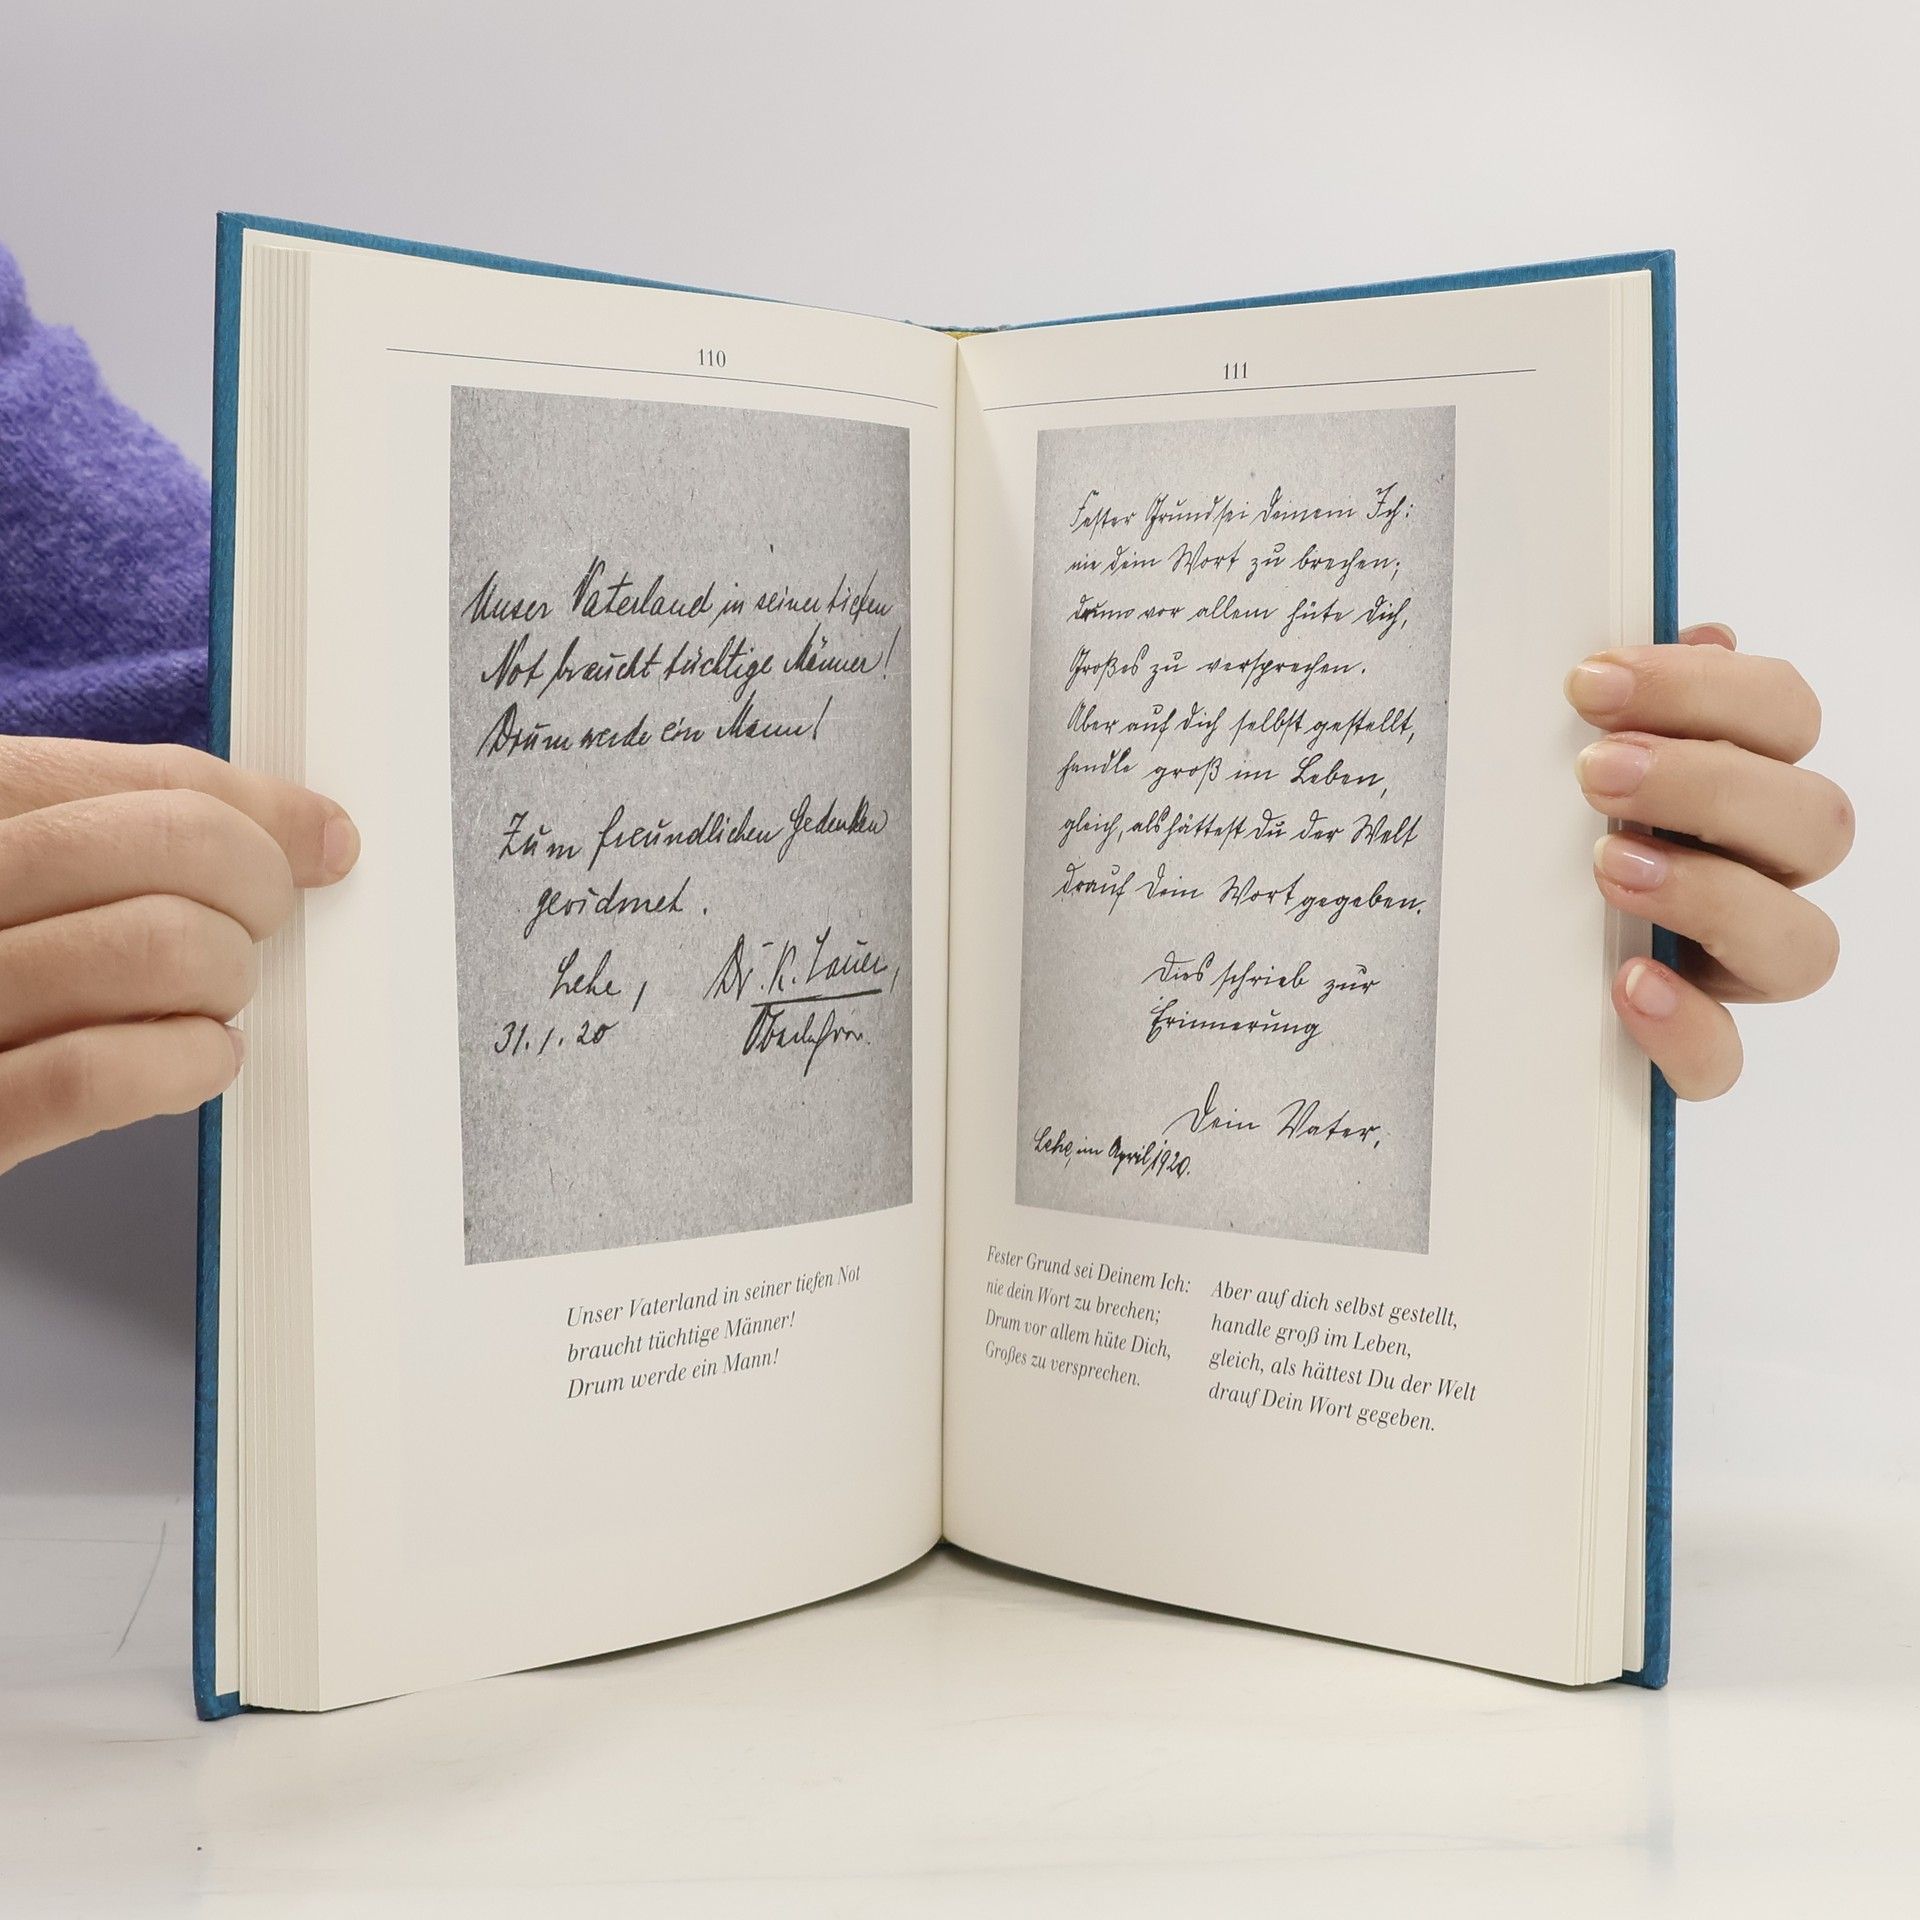 110
Unser Vaterland in seiner tiefen
Not braucht tüchtige Männer!
Drum werde ein Mann!
Zum freundlichen Gedenken
gewidmet.
Lehe, Dr. K. Lauer,
31.1.20 Oberlehrer.
Unser Vaterland in seiner tiefen Not
braucht tüchtige Männer!
Drum werde ein Mann!
111
Fester Grund sei Deinem Ich:
nie dein Wort zu brechen;
drum vor allem hüte Dich,
Großes zu versprechen.
Aber auf dich selbst gestellt,
handle groß im Leben,
gleich, als hättest Du der Welt
drauf Dein Wort gegeben.
Dies schrieb zur
Erinnerung
Dein Vater,
Lehe, im April 1920.
Fester Grund sei Deinem Ich:
nie dein Wort zu brechen;
Drum vor allem hüte Dich,
Großes zu versprechen.
Aber auf dich selbst gestellt,
handle groß im Leben,
gleich, als hättest Du der Welt
drauf Dein Wort gegeben.